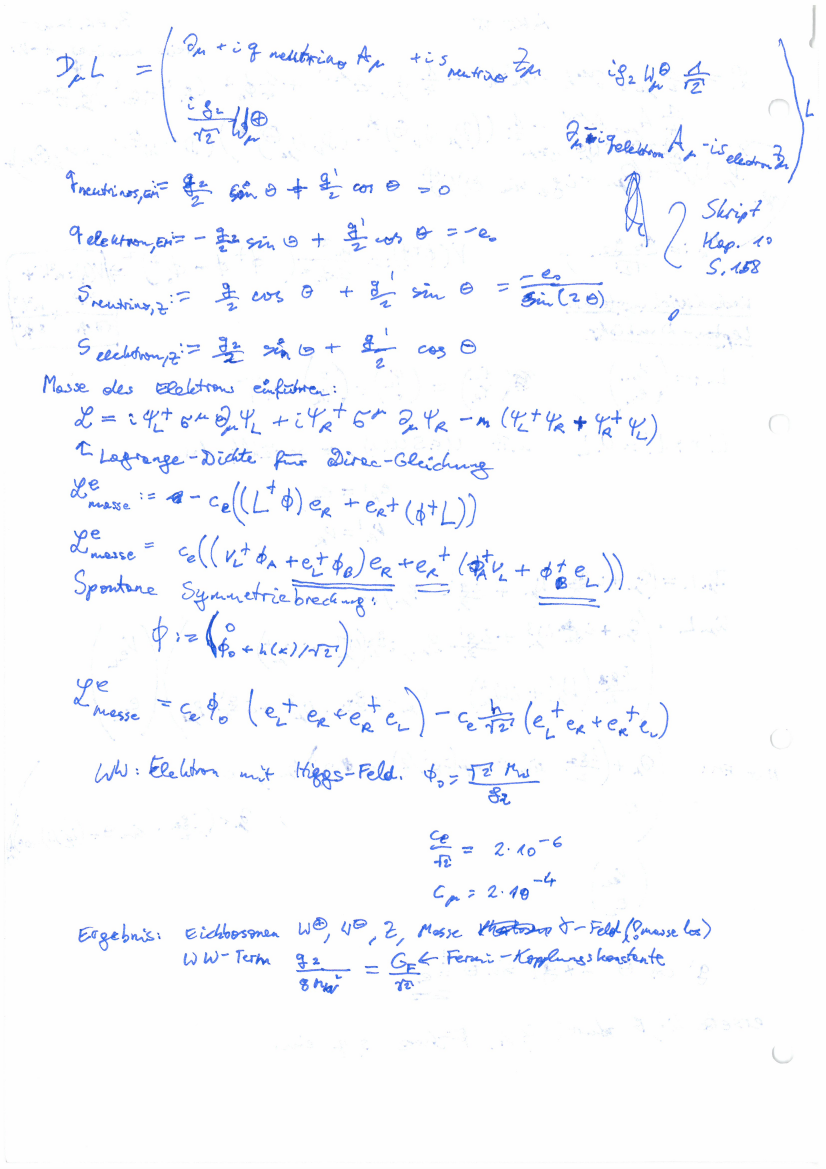 D_μ L = ( ∂_μ + i q_neutrino A_μ + i s_neutrino Z_μ    i g_2 W_μ^⊖ 1/√2
i g_2/√2 W_μ^⊕    ∂_μ - i q_elektron A_μ - i s_electron Z_μ ) L
q_neutrinos,EM = g_2/2 sin θ + g'/2 cos θ = 0
Skript
q_elektron,EM = - g_2/2 sin θ + g'/2 cos θ = -e_0
Kap. 10
S. 158
S_neutrino,Z := g/2 cos θ + g'/2 sin θ = -e_0/sin(2θ)
S_elecktron,Z := g_2/2 sin θ + g'/2 cos θ
Masse des Elektrons einführen:
ℒ = i ψ_L^† σ^μ ∂_μ ψ_L + i ψ_R^† σ^μ ∂_μ ψ_R - m (ψ_L^† ψ_R + ψ_R^† ψ_L)
↑ Lagrange-Dichte für Dirac-Gleichung
ℒ^e_masse := - c_e((L^† ϕ) e_R + e_R^† (ϕ^† L))
ℒ^e_masse = c_e((ν_L^† ϕ_A + e_L^† ϕ_B) e_R + e_R^† (ϕ_A^† ν_L + ϕ_B^† e_L))
Spontane Symmetriebrechung:
ϕ := (0
ϕ_0 + h(x)/√2)
ℒ^e_masse = c_e ϕ_0 (e_L^† e_R + e_R^† e_L) - c_e h/√2 (e_L^† e_R + e_R^† e_L)
WW: Elektron mit Higgs-Feld. ϕ_0 = √2 M_W/g_2
c_e/√2 = 2·10^-6
c_μ = 2·10^-4
Ergebnis: Eichbosonen W^⊕, W^⊖, Z, Masse γ-Feld (masselos)
WW-Term g_2/8 M_W^2 = G_F/√2 ← Fermi-Kopplungskonstante